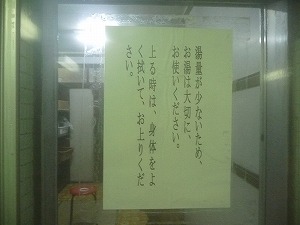 湯量が少ないため、
お湯は大切に、
お使いください。
上る時は、身体をよ
く拭いて、お上りくだ
さい。